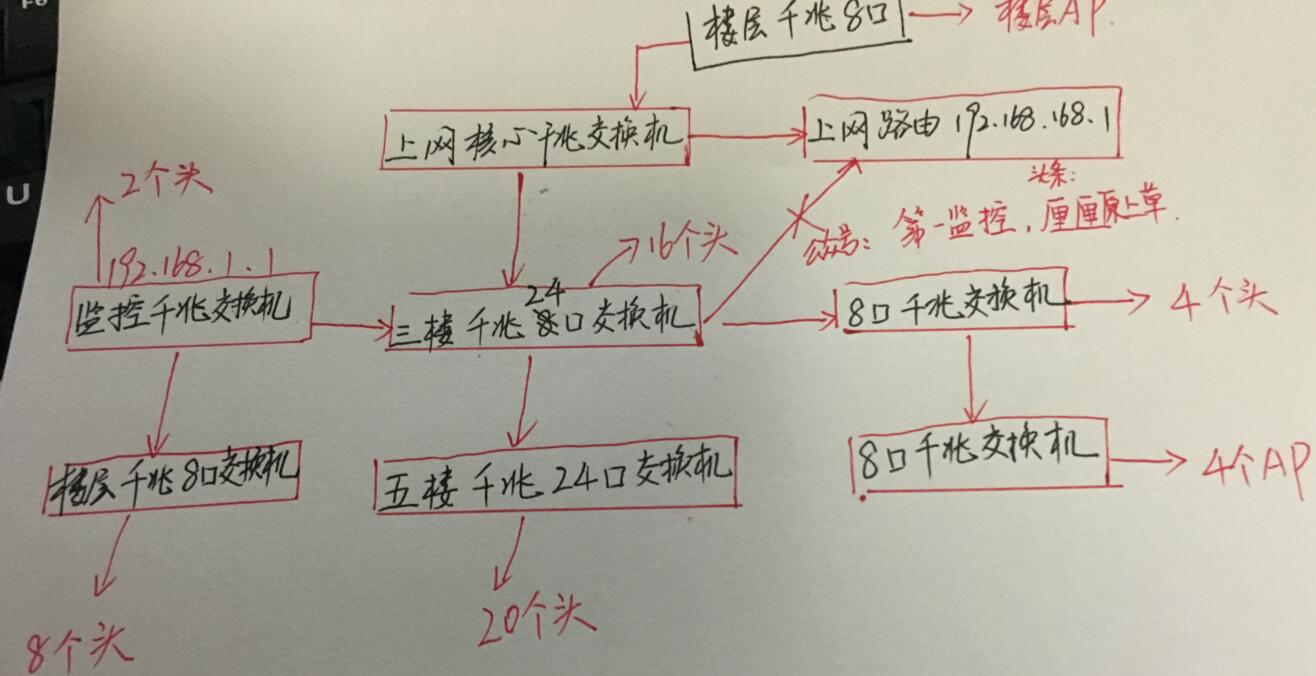 楼层千兆8口
楼层AP.
上网核心千兆交换机
上网路由192.168.168.1
2个头
头条:
公众号: 第一监控, 厘厘原上草.
192.168.1.1
16个头
监控千兆交换机
24
三楼千兆8口交换机
8口千兆交换机
4个头
楼层千兆8口交换机
五楼千兆24口交换机
8口千兆交换机
4个AP
8个头
20个头
U